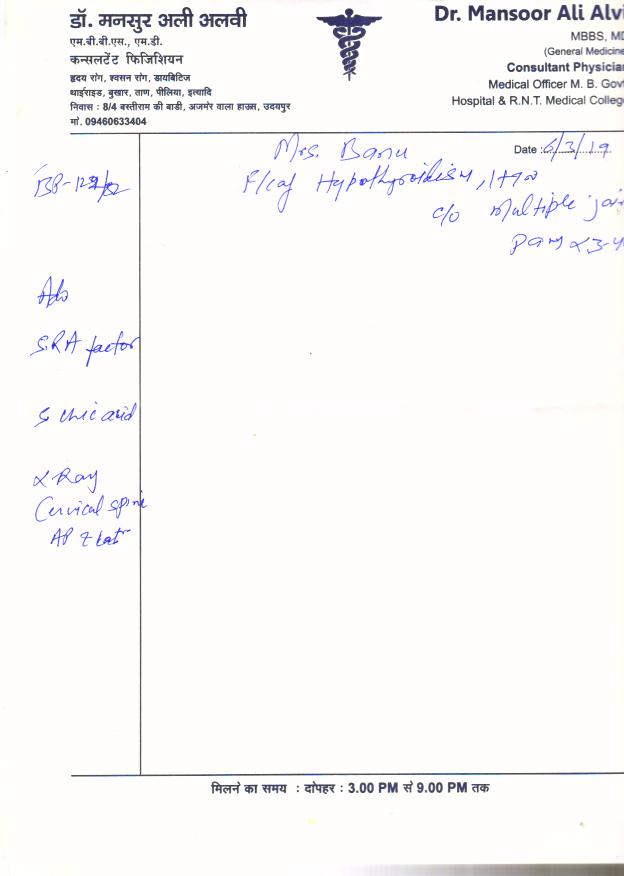 डॉ. मनसुर अली अलवी
एम.बी.बी.एस., एम.डी.
कन्सलटेंट फिजिशियन
हृदय रोग, श्वसन रोग, डायबिटिज
थाईराइड, बुखार, ताण, पीलिया, इत्यादि
निवास : 8/4 बस्तीराम की बाडी, अजमेर वाला हाउस, उदयपुर
मो. 09460633404
Dr. Mansoor Ali Alvi
MBBS, MD
(General Medicine
Consultant Physician
Medical Officer M. B. Govt
Hospital & R.N.T. Medical College
Date : 6/3/19
Mrs. Banu
F/caf Hypothyroidism, HTN
c/o Multiple join
Pain
BP-
Adv
S.RA factor
S uric acid
X-Ray
Cervical spine
AP & Lat
मिलने का समय : दोपहर : 3.00 PM से 9.00 PM तक